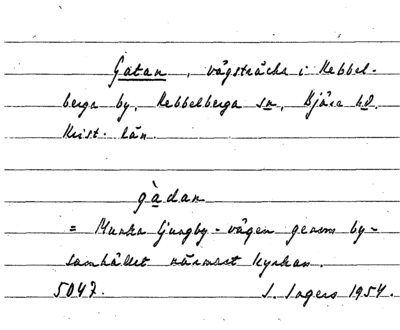 Gatan, vägsträcka i Rebbel-
berga by, Rebbelberga sn, Bjäre hd.
Krist. län.
gàdan
= Munka Ljungby-vägen genom by-
samhället närmast kyrkan.
5047. S. Ingers 1954.